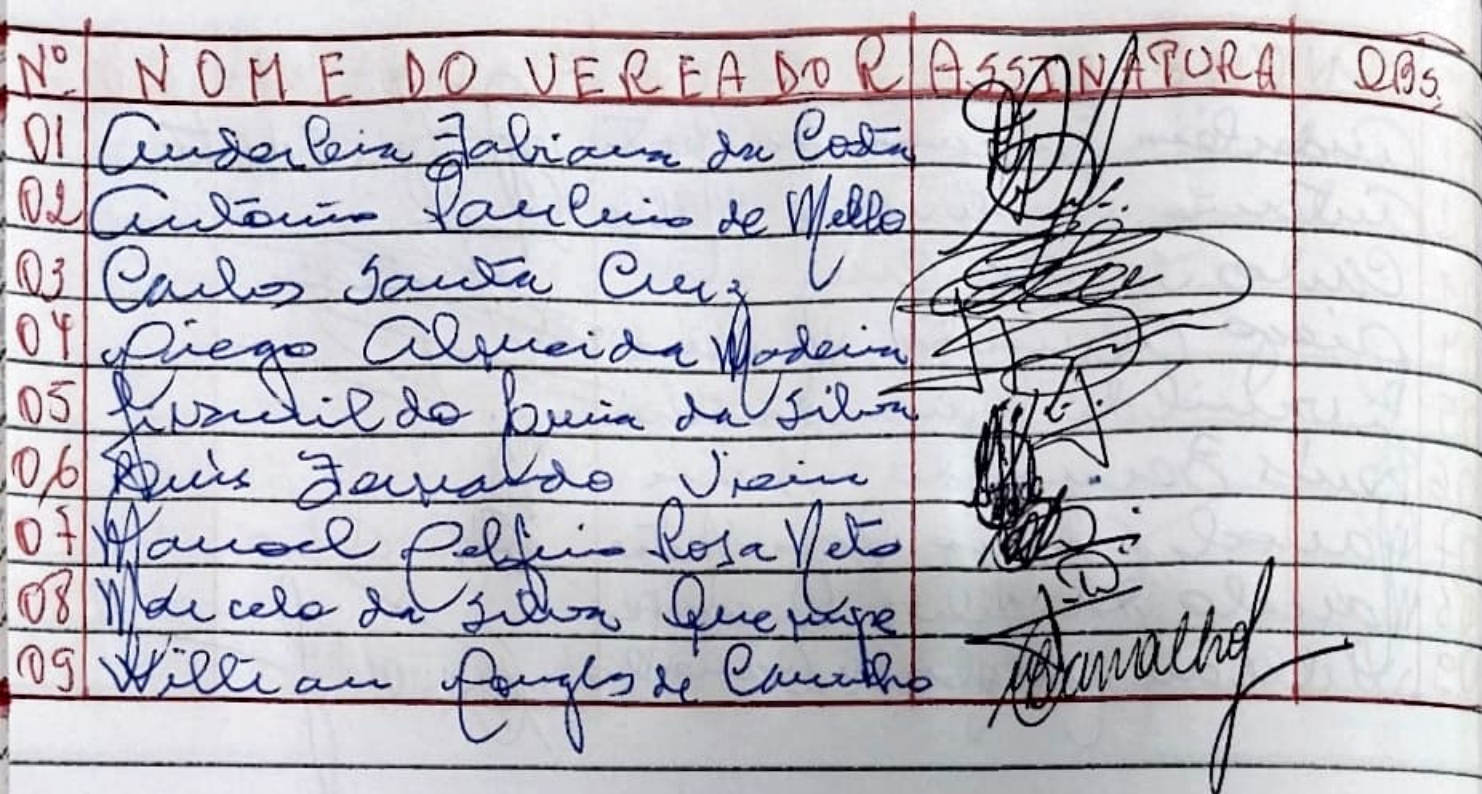 Nº NOME DO VEREADOR ASSINATURA OBS.
01 Anderleia Fabiana da Costa
02 Antonio Paulino de Mello
03 Carlos Santa Cruz
04 Diego Almeida Madeira
05 da Silva
06 Luis Fernando Vieira
07 Manoel Delfino Rosa Neto
08 Marcelo da Silva
09 Willian Douglas de Carvalho Carvalho